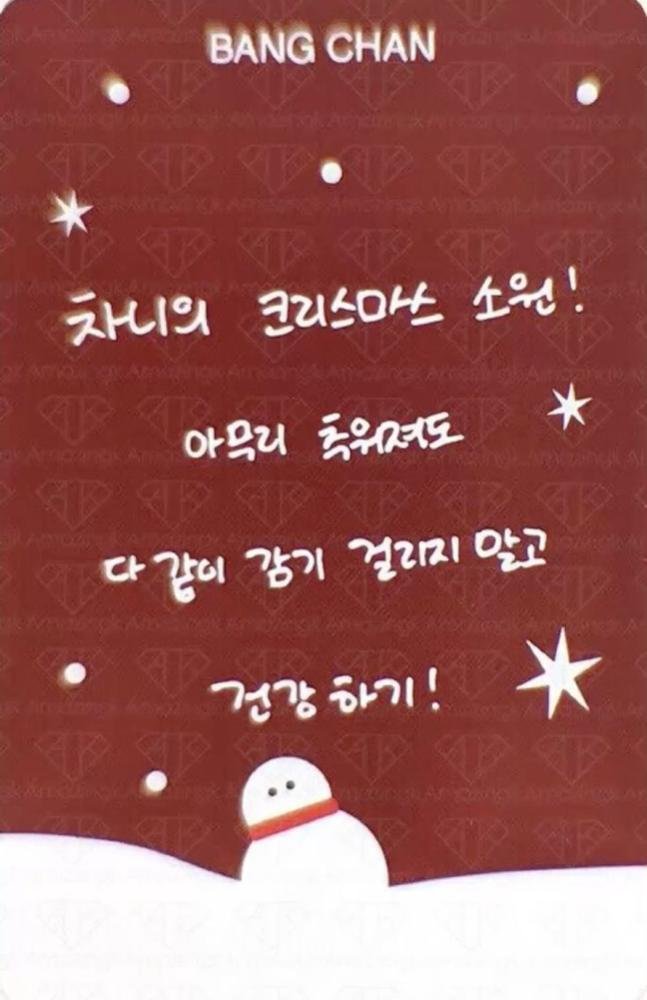 BANG CHAN
차니의 크리스마스 소원!
아무리 추워져도
다 같이 감기 걸리지 말고
건강하기!